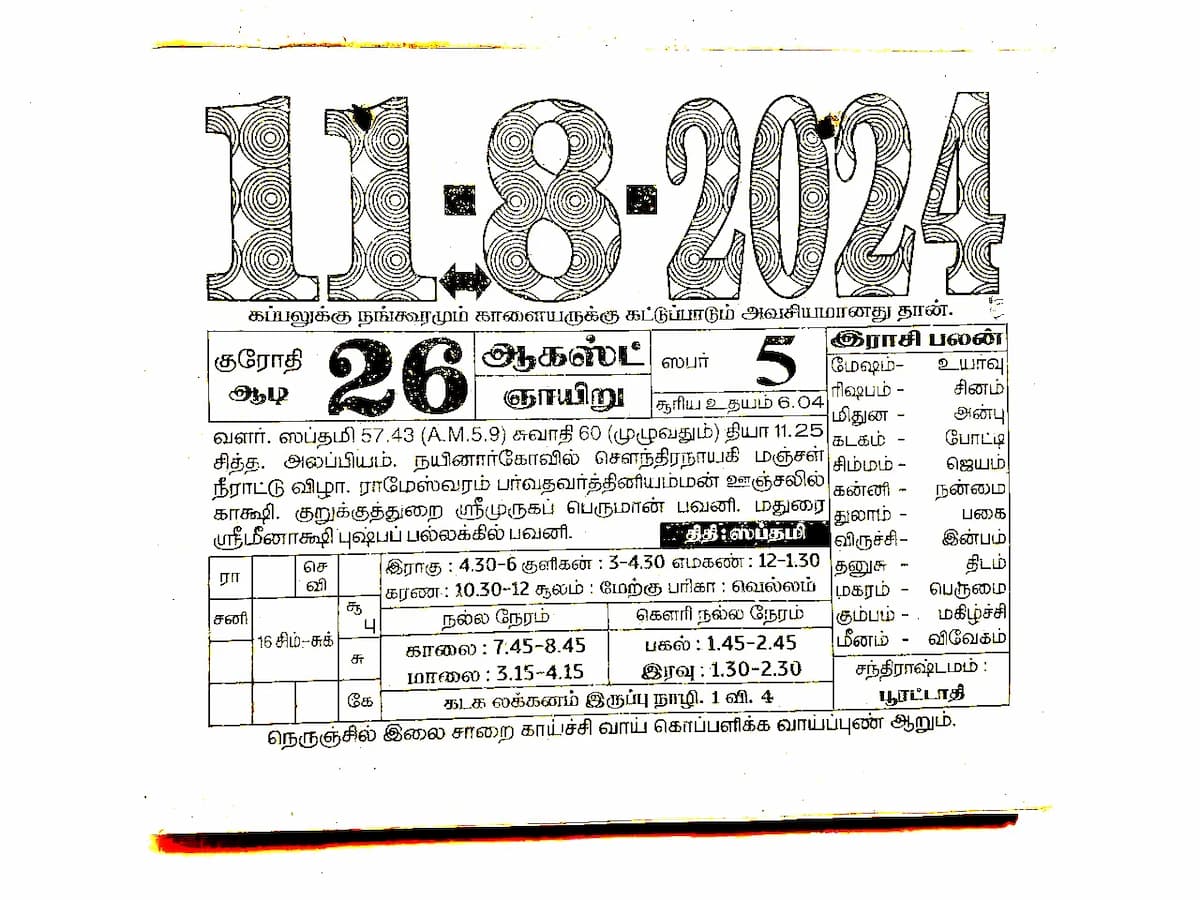 11-8-2024
கப்பலுக்கு நங்கூரமும் காளையருக்கு கட்டுப்பாடும் அவசியமானது தான்.
குரோதி
ஆடி
26
ஆகஸ்ட்
ஞாயிறு
ஸபர் 5
சூரிய உதயம் 6.04
வளர். ஸப்தமி 57.43 (A.M.5.9) சுவாதி 60 (முழுவதும்) தியா 11.25
சித்த. அலப்பியம். நயினார்கோவில் சௌந்திரநாயகி மஞ்சள்
நீராட்டு விழா. ராமேஸ்வரம் பர்வதவர்த்தினியம்மன் ஊஞ்சலில்
காக்ஷி. குறுக்குத்துறை ஸ்ரீமுருகப் பெருமான் பவனி. மதுரை
ஸ்ரீமீனாக்ஷி புஷ்பப் பல்லக்கில் பவனி.
திதி : ஸப்தமி
இராசி பலன்
மேஷம்- உயர்வு
ரிஷபம் - சினம்
மிதுன - அன்பு
கடகம் - போட்டி
சிம்மம் - ஜெயம்
கன்னி - நன்மை
துலாம் - பகை
விருச்சி- இன்பம்
தனுசு - திடம்
மகரம் - பெருமை
கும்பம் - மகிழ்ச்சி
மீனம் - விவேகம்
சந்திராஷ்டமம் :
பூரட்டாதி
ரா
செ
வி
சனி
16 சிம்-சுக்
சூ
பு
சு
கே
இராகு : 4.30-6 குளிகன் : 3-4.30 எமகண் : 12-1.30
கரண : 10.30-12 சூலம் : மேற்கு பரிகா : வெல்லம்
நல்ல நேரம்
காலை : 7.45-8.45
மாலை : 3.15-4.15
கௌரி நல்ல நேரம்
பகல் : 1.45-2.45
இரவு : 1.30-2.30
கடக லக்கனம் இருப்பு நாழி. 1 வி. 4
நெருஞ்சில் இலை சாறை காய்ச்சி வாய் கொப்பளிக்க வாய்ப்புண் ஆறும்.